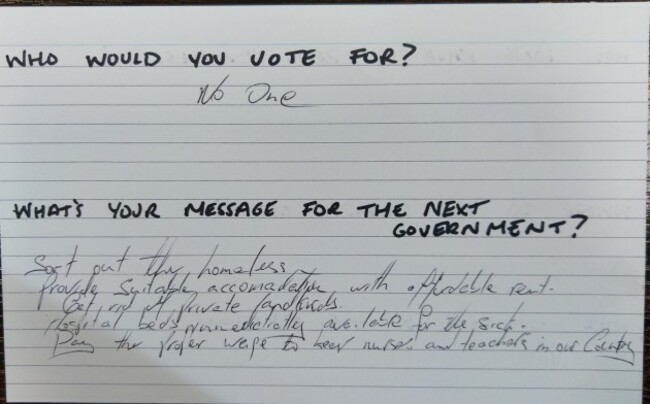 WHO WOULD YOU VOTE FOR?
No One
WHAT'S YOUR MESSAGE FOR THE NEXT
GOVERNMENT?
Sort out the homeless.
Provide suitable accomadation, with affordable rent.
Get rid of private landlords.
Hospital beds immediately available for the sick.
Pay the proper wage to keep nurses and teachers in our Country